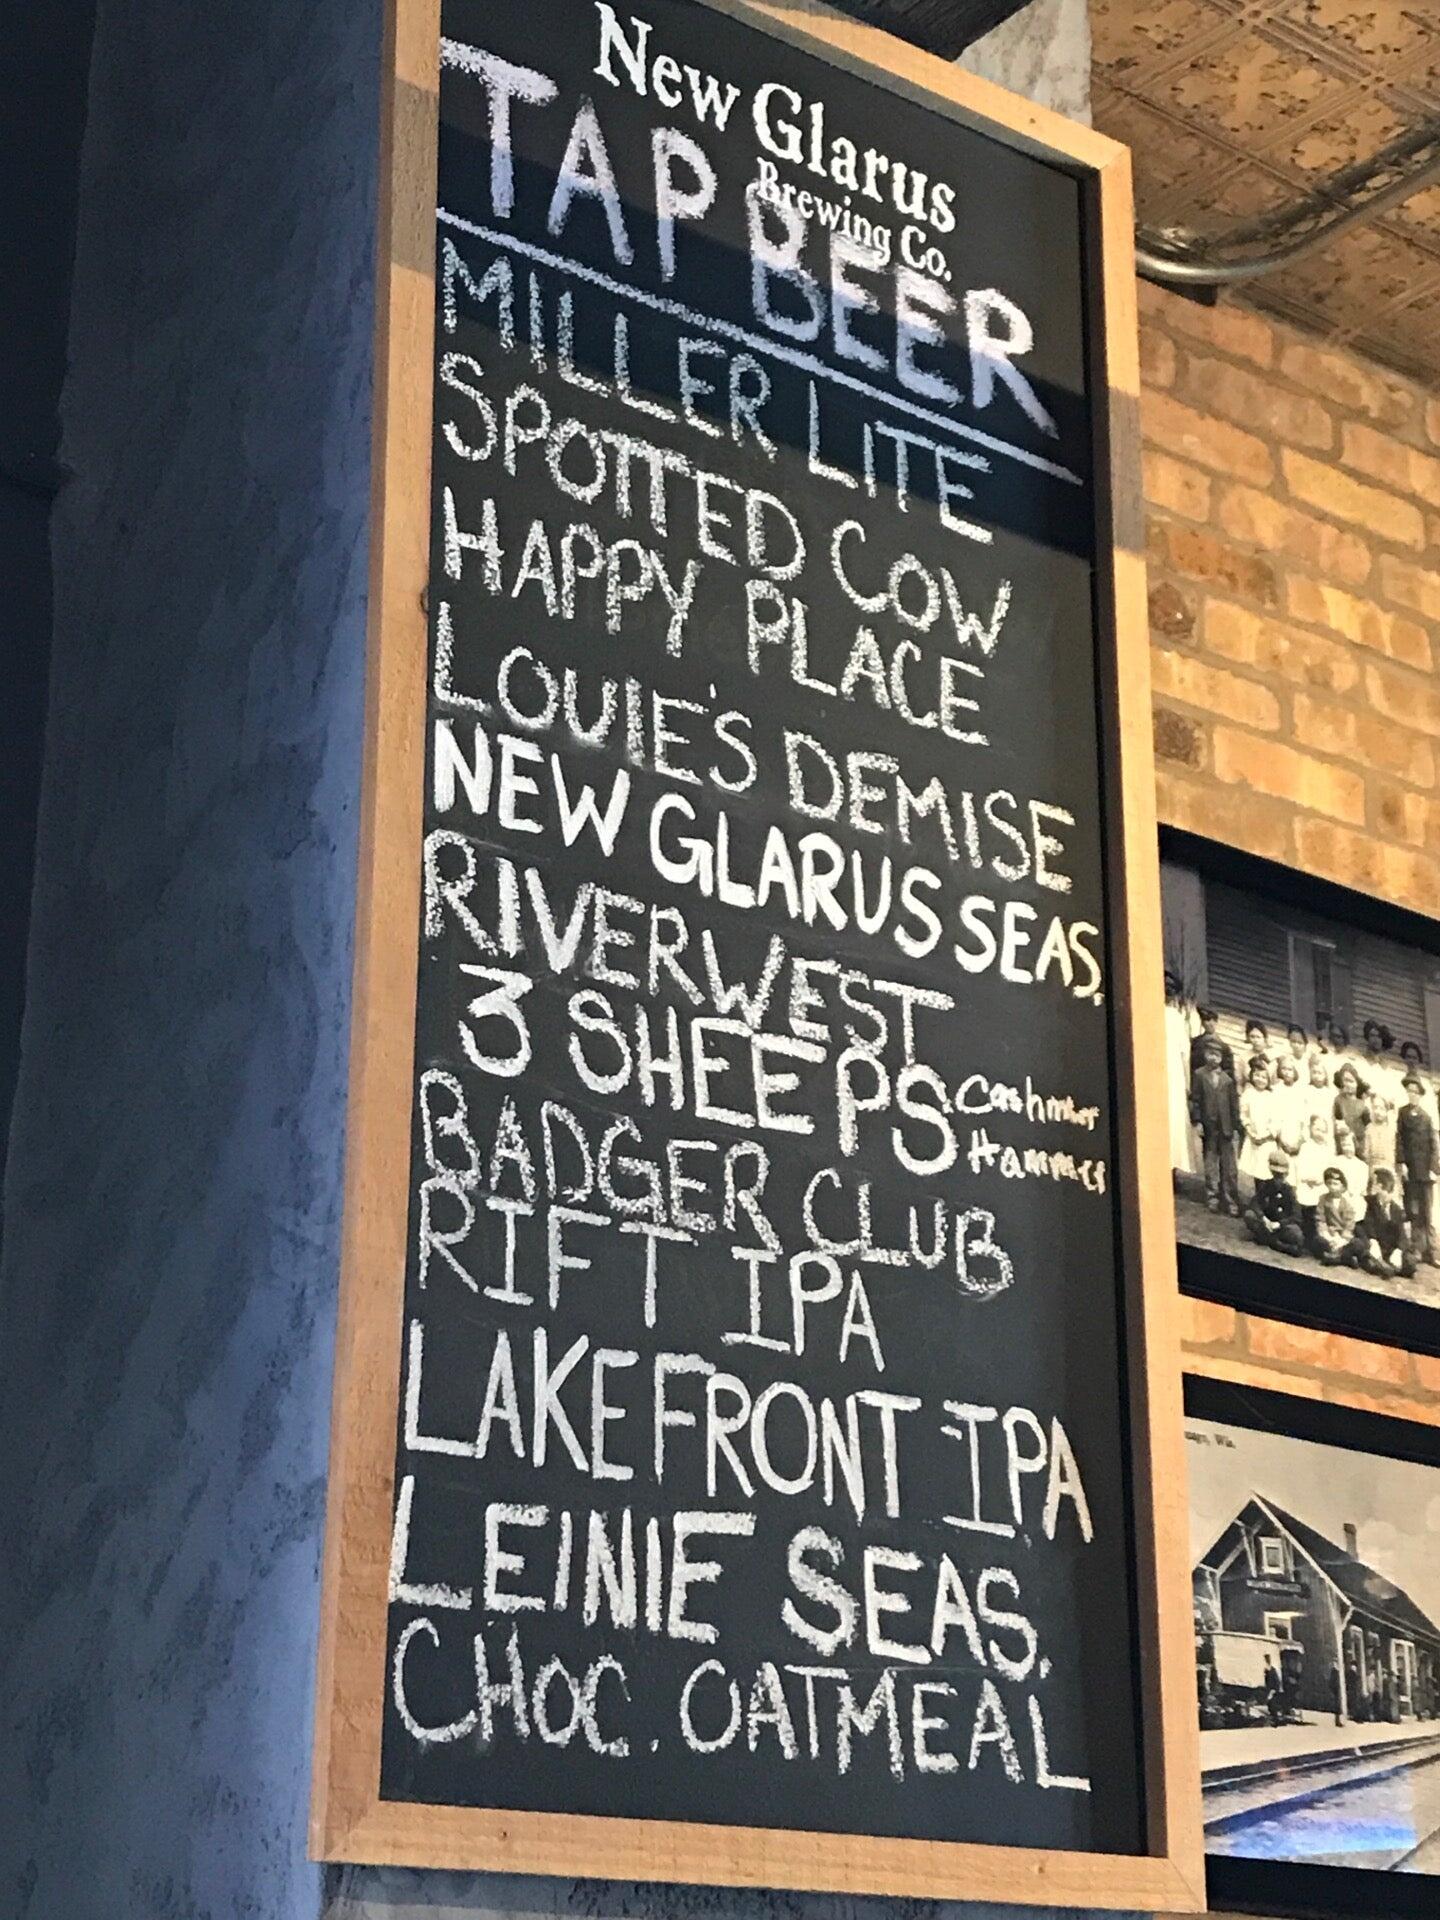 New Glarus
Brewing Co.
TAP BEER
MILLER LITE
SPOTTED COW
HAPPY PLACE
LOUIE'S DEMISE
NEW GLARUS SEAS.
RIVERWEST
3 SHEEPS Cashmere
Hammer
BADGER CLUB
RIFT IPA
LAKEFRONT IPA
LEINIE SEAS.
CHOC. OATMEAL
Wis.